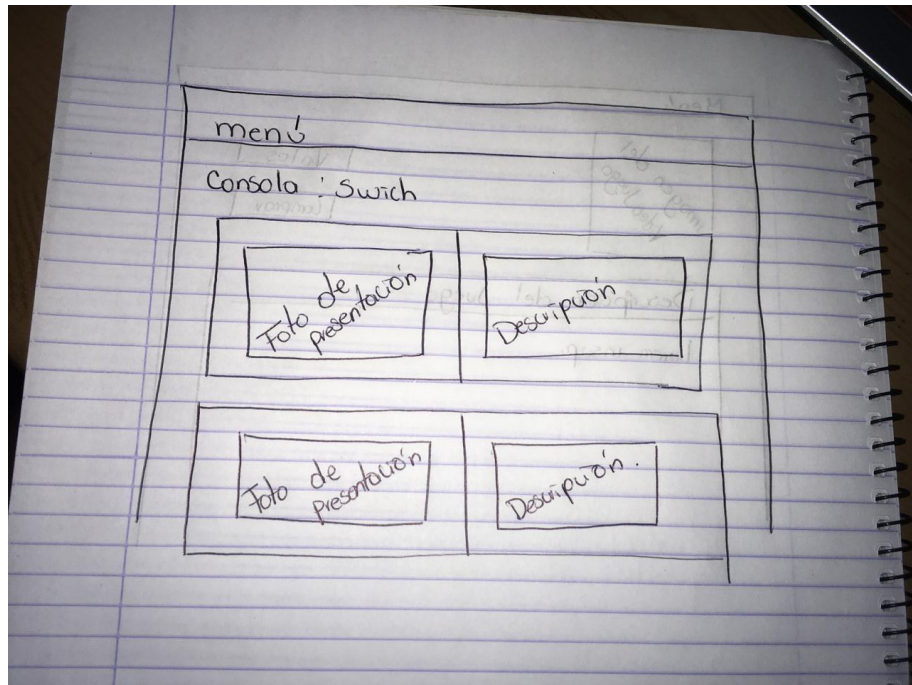 menú
Consola : Swich
Foto de
presentación
Descripción
Foto de
presentación
Descripción.